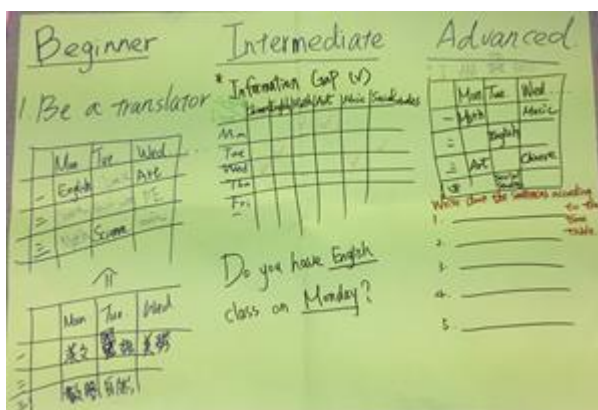 Beginner
1. Be a translator
Mon Tue Wed
一 English Art
二
三 Math Science
Mon Tue Wed
一 英文 美術
二 數學 自然
三
Intermediate
* Information Gap (v)
English Math Art Music Social studies
Mon
Tue
Wed
Thu
Fri
Do you have English
class on Monday?
Advanced
Mon Tue Wed ...
一 Math Music
二 English
三 Art Chinese
四 Social Studies
Write down the sentences according
to the
time
table.
1.
2.
3.
4.
5.